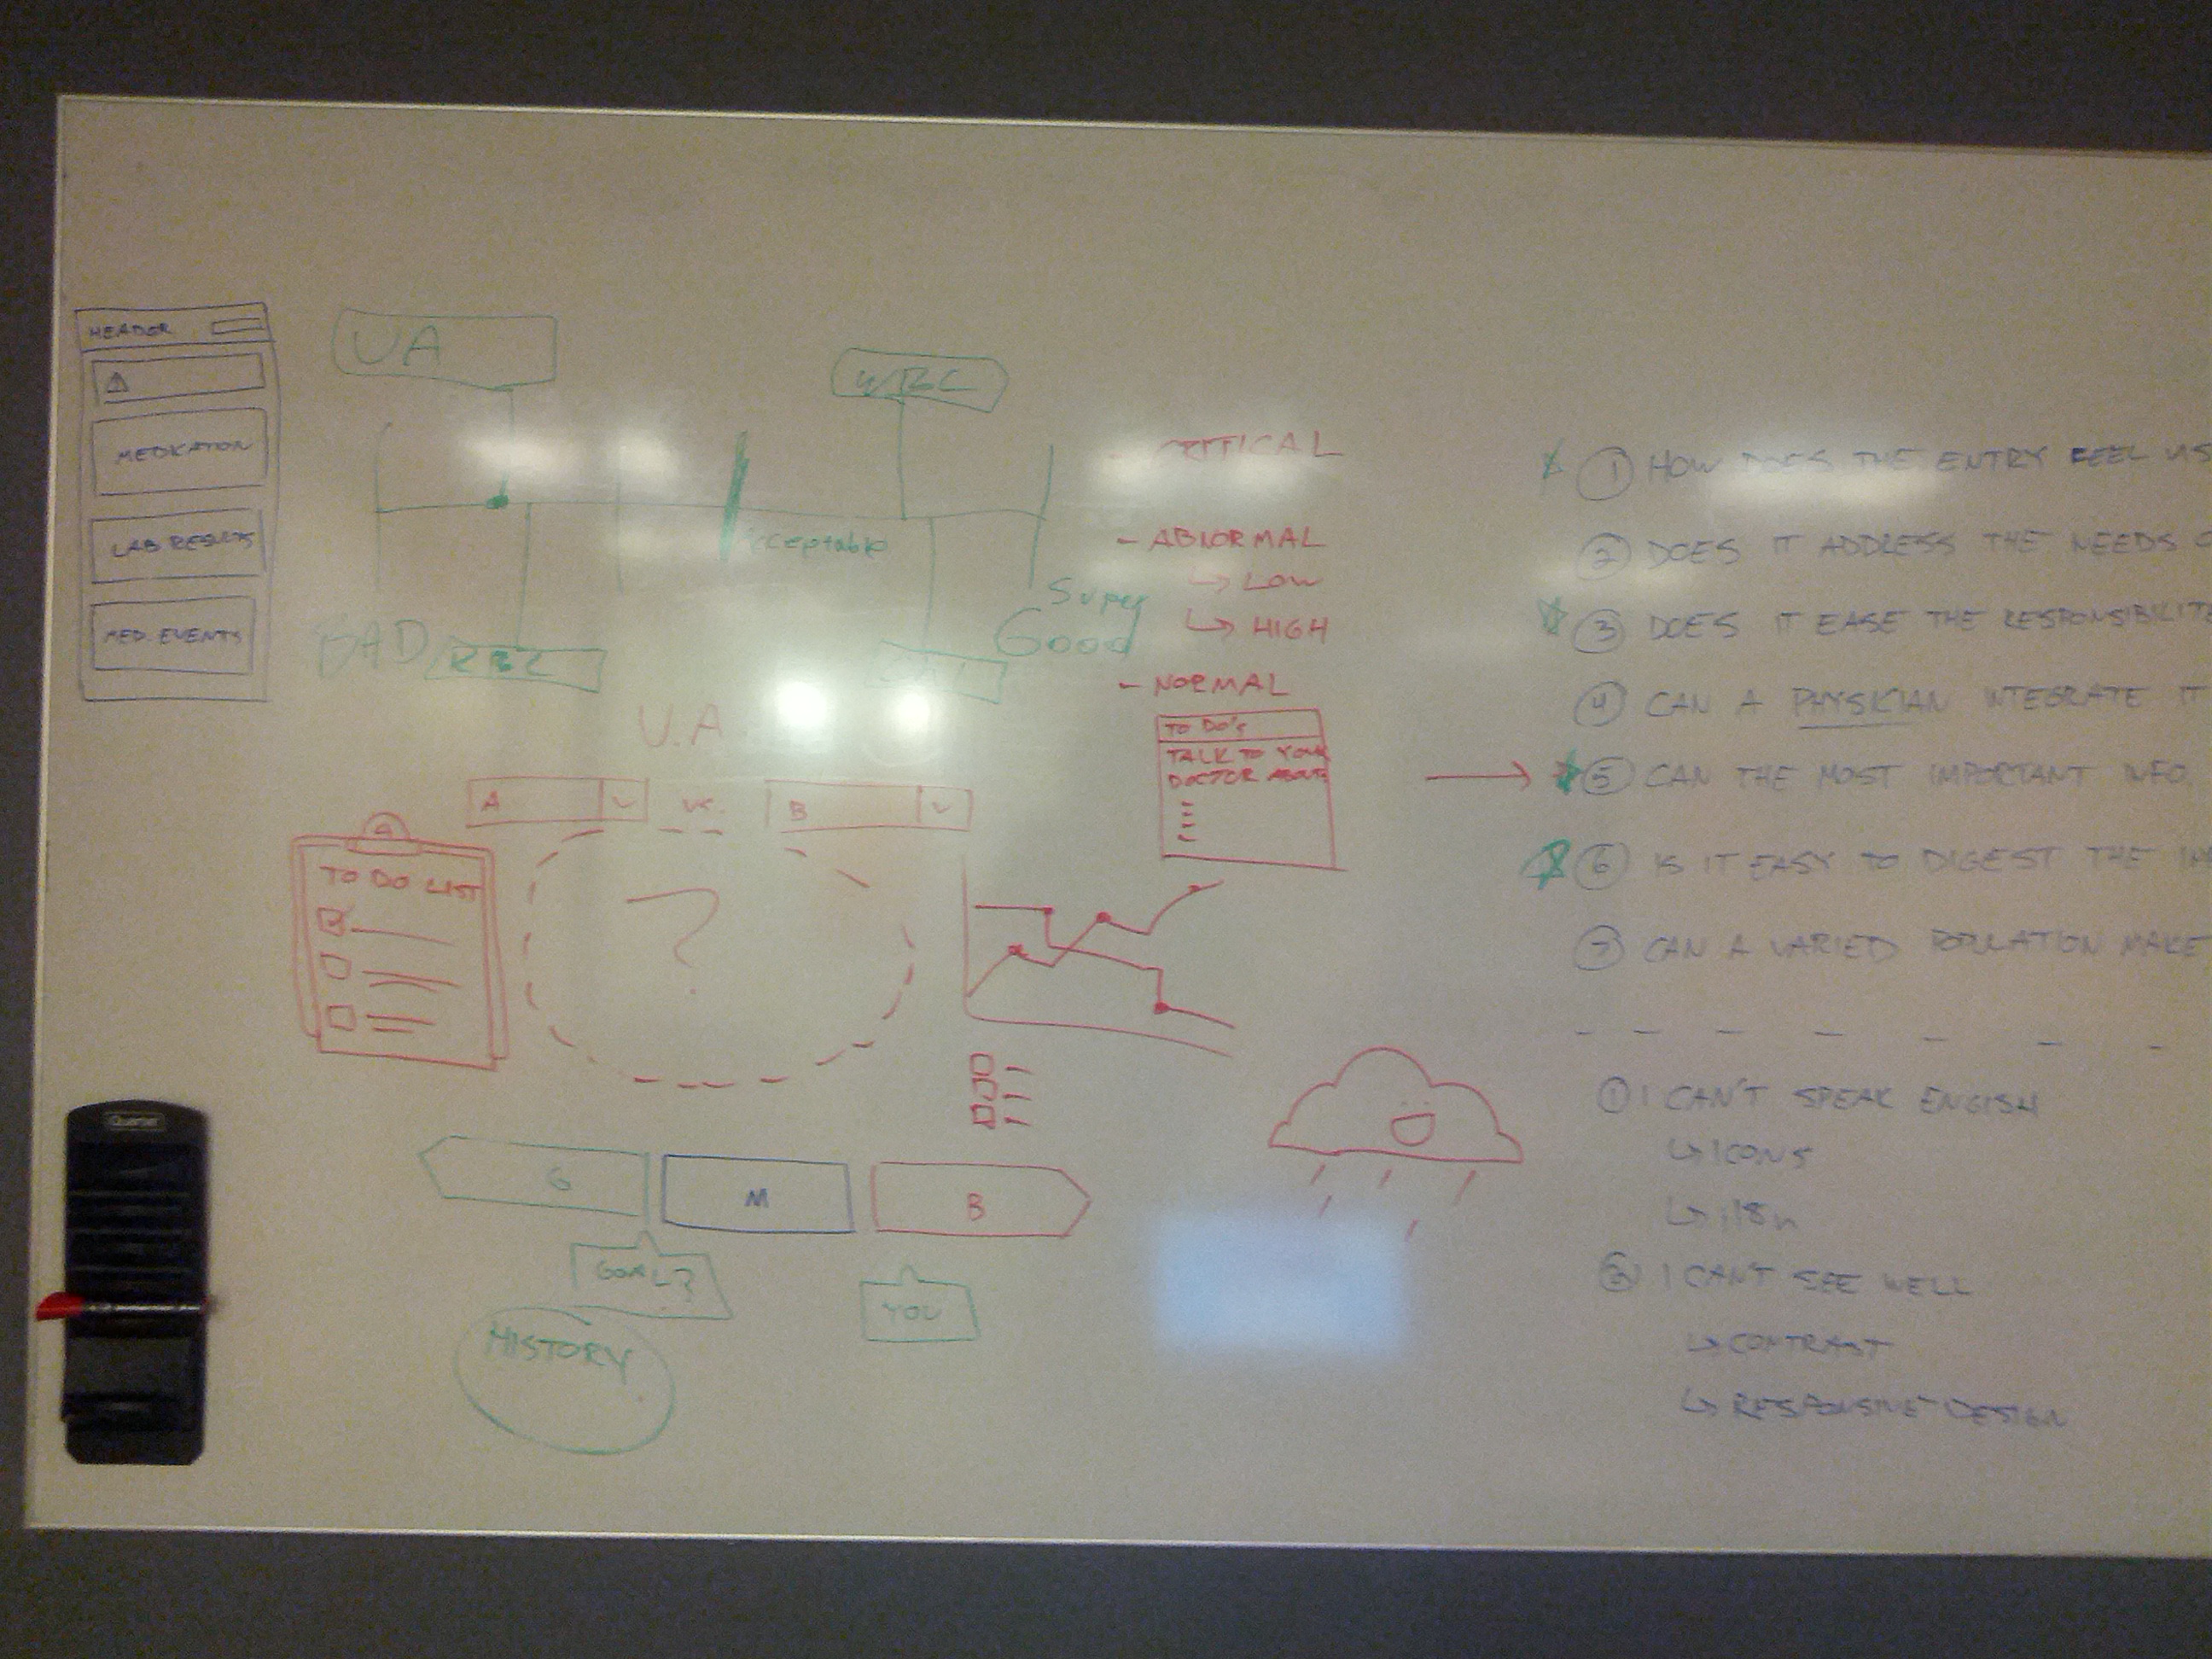 HEADER
MEDICATION
LAB RESULTS
MED. EVENTS
UA
WBC
Acceptable
BAD
RBC
Super
Good
- CRITICAL
- ABNORMAL
↳ LOW
↳ HIGH
- NORMAL
TO DO's
TALK TO YOUR
DOCTOR ABOUT
U.A.
A vs. B
TO DO LIST
?
G M B
GOAL?
YOU
HISTORY
① HOW DOES THE ENTRY FEEL VIS
② DOES IT ADDRESS THE NEEDS
③ DOES IT EASE THE RESPONSIBILIT
④ CAN A PHYSICIAN INTEGRATE IT
⑤ CAN THE MOST IMPORTANT INFO.
⑥ IS IT EASY TO DIGEST THE
⑦ CAN A VARIED POPULATION MAKE
① I CAN'T SPEAK ENGISH
↳ ICONS
↳ i18n
② I CAN'T SEE WELL
↳ CONTRAST
↳ RESPONSIVE DESIGN
Quartet